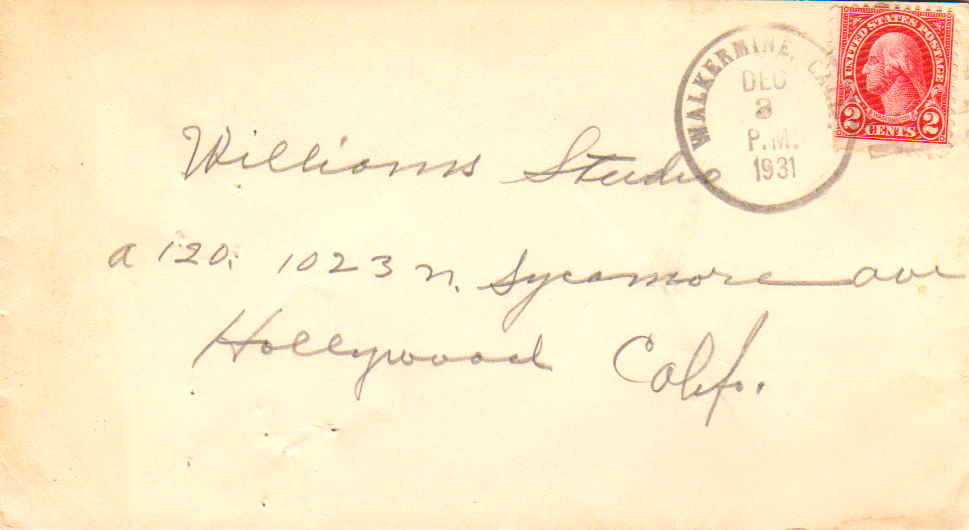 WALKERMINE, CALIF.
DEC
3
P.M.
1931
UNITED STATES POSTAGE
WASHINGTON
2 CENTS 2
Williams Studio
a 120. 1023 N. Sycamore ave
Hollywood Calif.